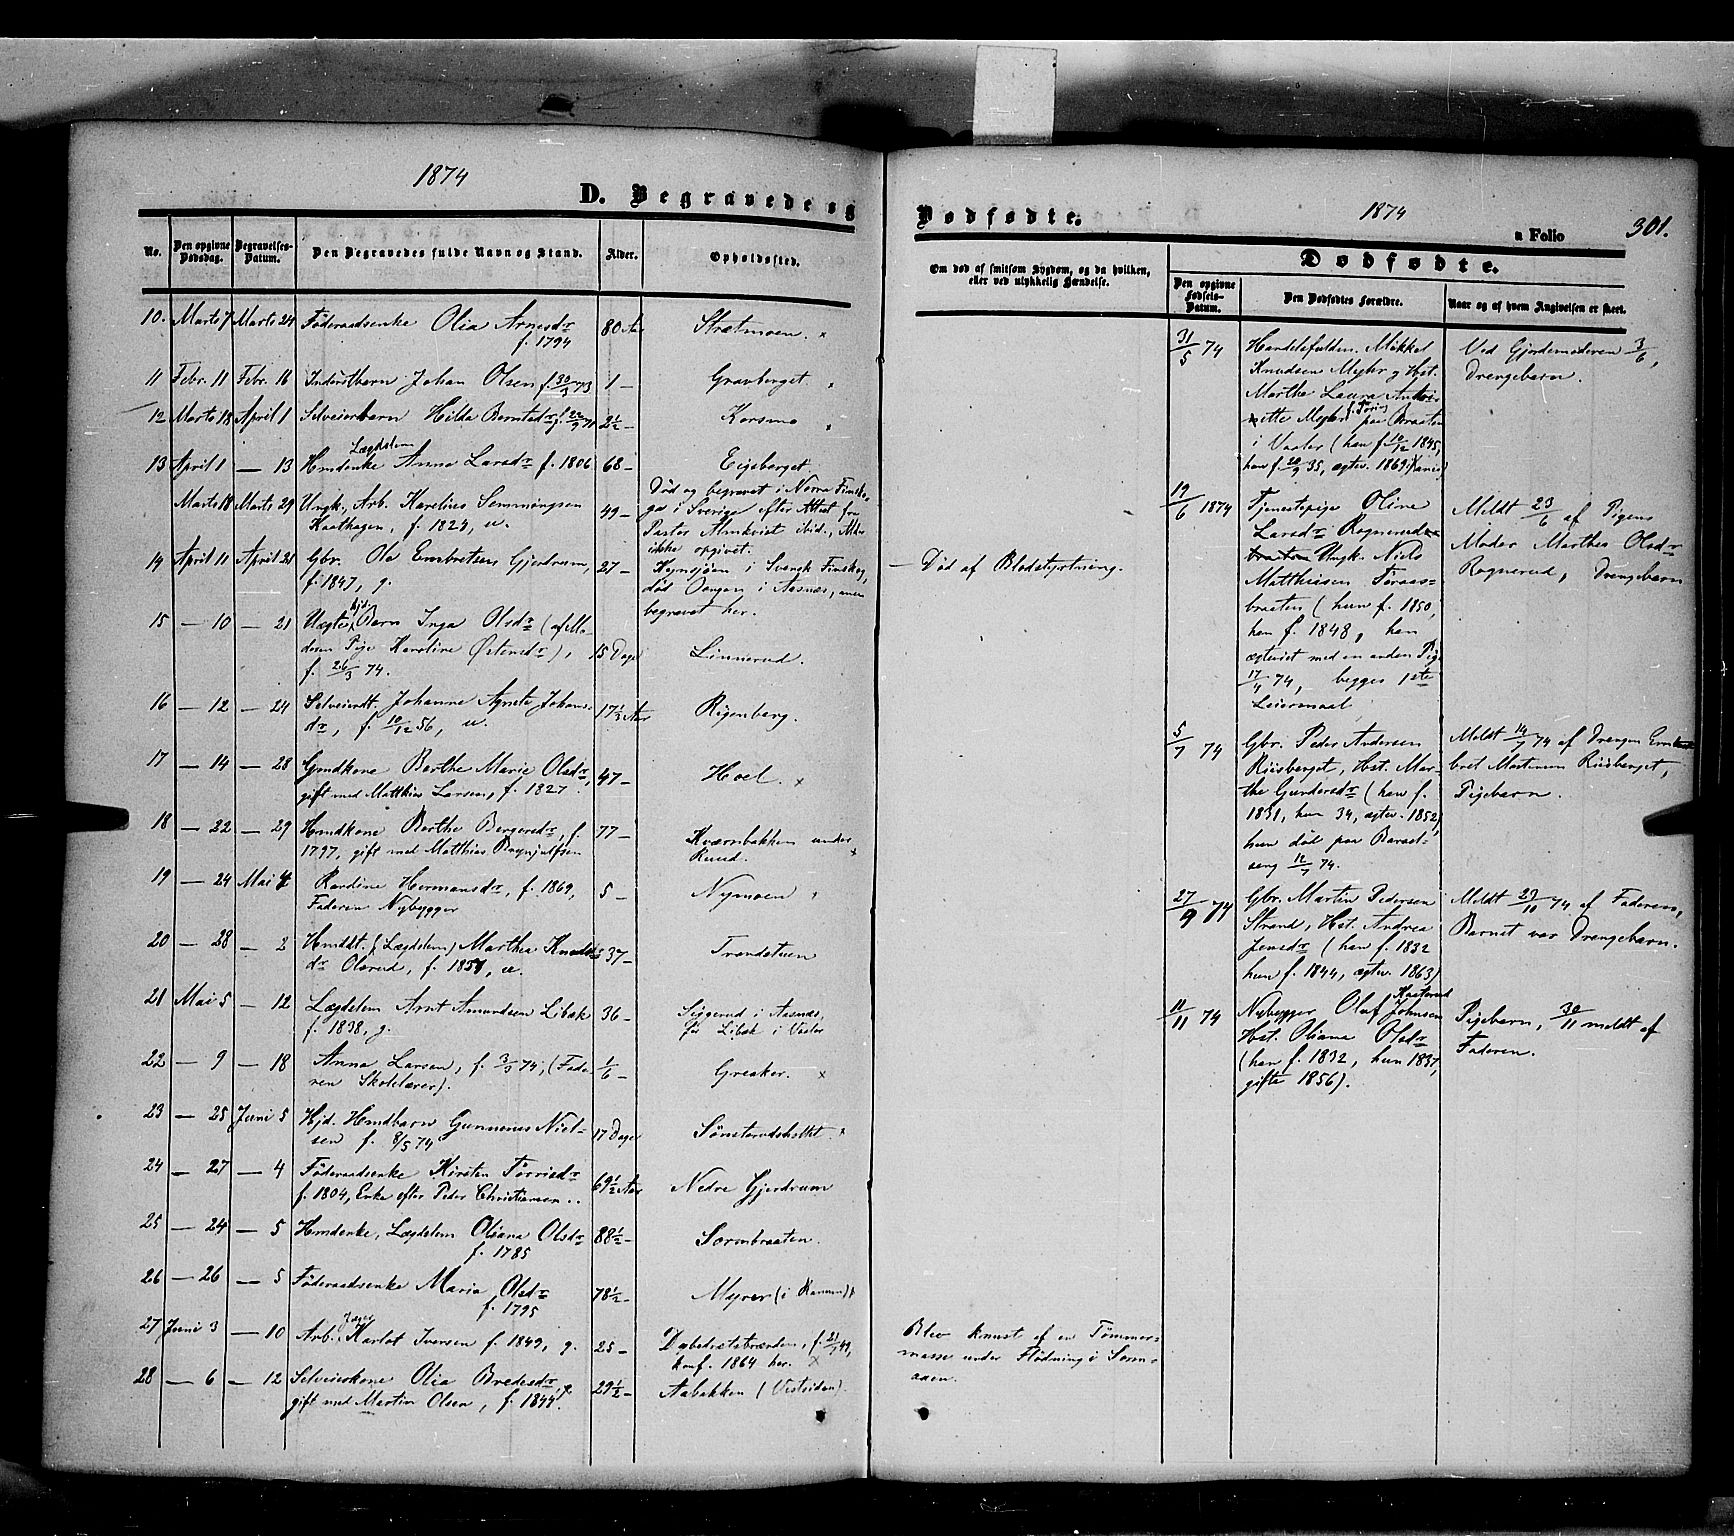 1874
D. Begravede og
No.
Den opgivne Dødsdag.
Begravelses-Datum.
Den Begravedes fulde Navn og Stand.
Alder.
Opholdssted.
10. Marts 7 Marts 24 Føderaadsenke Olia Arnesdr 80 Aar Strætmoen.
f. 1794
11 Febr. 11 Febr. 16 Inderstbarn Johan Olsen f. 30/3 73 1 — Gravberget
12 Marts 18 April 1 Selveierbarn Hilda Berntsdr f. 2½ — Korsmo
Lægdslem
13 April 1 — 13 Hmdenke Anna Larsdr f. 1806 68 — Eigsberget.
Marts 18 Marts 29 Ungk. Arb. Karelius Semmingsen 49 — Død og begravet i Norra Finsko-
Kaathagen, f. 1824, u. ga i Sverige efter Attest fra
Pastor Almkvist ibid., Alder
ikke opgivet.
14 April 11 April 21 Gbr. Ole Embretsen Gjerdrum, 27 — i Svensk Finskog,
f. 1847, g. død i Aasnæs, men
begravet her.
15 — 10 — 21 Uægte hjd. Barn Inga Olsdr (af Mo-
deren Pige Karoline Østensdr), 15 Dage Linnerud.
f. 26/3 74.
16 — 12 — 24 Selveierdt. Johanne Agnete Johans- 17½ Aar Rigenberg.
dr, f. 10/12 56, u.
17 — 14 — 28 Gmdkone Berthe Marie Olsdr, 47 — Hoel.
gift med Matthis Larsen, f. 1827
18 — 22 — 29 Hmdkone Berthe Bergersdr, f. 77 — Kværnbakken under
1797, gift med Matthias Brynjulfsen Ruud.
19 — 24 Mai 4 Karoline Hermansdr, f. 1869, 5 — Nymoen
Faderen Nybygger
20 — 28 — 2 Hmddt. (Lægdslem) Marthea Knuds- 37 — Trondstuen
dr Olsrud, f. u.
21 Mai 5 — 12 Lægdslem Arnt Amundsen Libak 36 — Siggerud i Aasnæs,
f. 1838, g. før Libak i Vaaler
22 — 9 — 18 Anna Larsen, f. 3/3 74, (Fade- 1/6 — Greaker.
ren Skolelærer).
23 — 25 Juni 5 Hjd. Hmdbarn Gunnerius Niel- 17 Dage Sønsterudsholtet.
sen f. 8/5 74
24 — 27 — 4 Føderaadsenke Kirsten Tørrisdr 69½ Aar Nedre Gjerdrum
f. 1804, Enke efter Peder Christiansen.
25 — 24 — 5 Hmdenke, Lægdslem Oliana Olsdr 88½ — Sormbraaten.
f. 1785
26 — 26 — 5 Føderaadsenke Maria Olsdr 78½ — Myrer
f. 1795
27 Juni 3 — 10 Arb. Karlot Iversen f. 1849, g. 25 — f. 21/7 49,
konf. 1864 her.
28 — 6 — 12 Selveierkone Olia Bredesdr, g. 29½ — Aabakken (Vestsiden).
gift med Martin Olsen, f. 1844.
Dødfødte.
1874
a Folio 301.
Om død af smitsom Sygdom, og da hvilken, eller ved ulykkelig Hændelse.
— Død af Blodstyrtning.
Blev knust af en Tømmer-
masse under Flødning i Sorm-
aaen.
Dødfødte.
Den opgivne Fødsels-Datum.
Den Dødfødtes Forældre.
Naar og af hvem Angivelsen er skeet.
31/5 74 Handelsfuldm. Mikkel Ved Gjordemoderen 3/6,
Knudsen Myhr og Hst. Drengebarn.
Marthe Laura Antoi-
nette Myhr f. Tøris paa Braaten
i Vaaler (hun f. 10/12 1845,
han f. 35, ægtev. 1869
19/6 1874 Tjenestepige Oline Meldt 23/6 af Pigens
Larsdr Rognerud Moder Marthe Olsdr
Ungk. Niels Rognerud, Drengebarn
Matthiesen Toraas-
braaten (hun f. 1850,
han f. 1848, han
ægteviet med en anden Pige
17/4 74, begges 1ste
Leiermaal
5/7 74 Gbr. Peder Andersen Meldt 14/7 74 af Drengen Em-
Riisberget, Hst. Mar- bret Martinsen Riisberget,
the Gundersdr (han f. Pigebarn.
1831, hun 34, ægtev. 1852),
hun død paa Barsel-
seng 12/7 74.
27/9 74 Gbr. Martin Pedersen Meldt 29/11 74 af Faderen,
Strand, Hst. Andrea Barnet var Drengebarn.
Jensdr (han f. 1832
hun f. 1844, ægtev. 1863)
11/11 74 Nybygger Olaf Johnsen Kaaterud Pigebarn, 30/11 meldt af
Hst. Oliana Olsdr Faderen.
(han f. 1832, hun 1837,
gifte 1856).